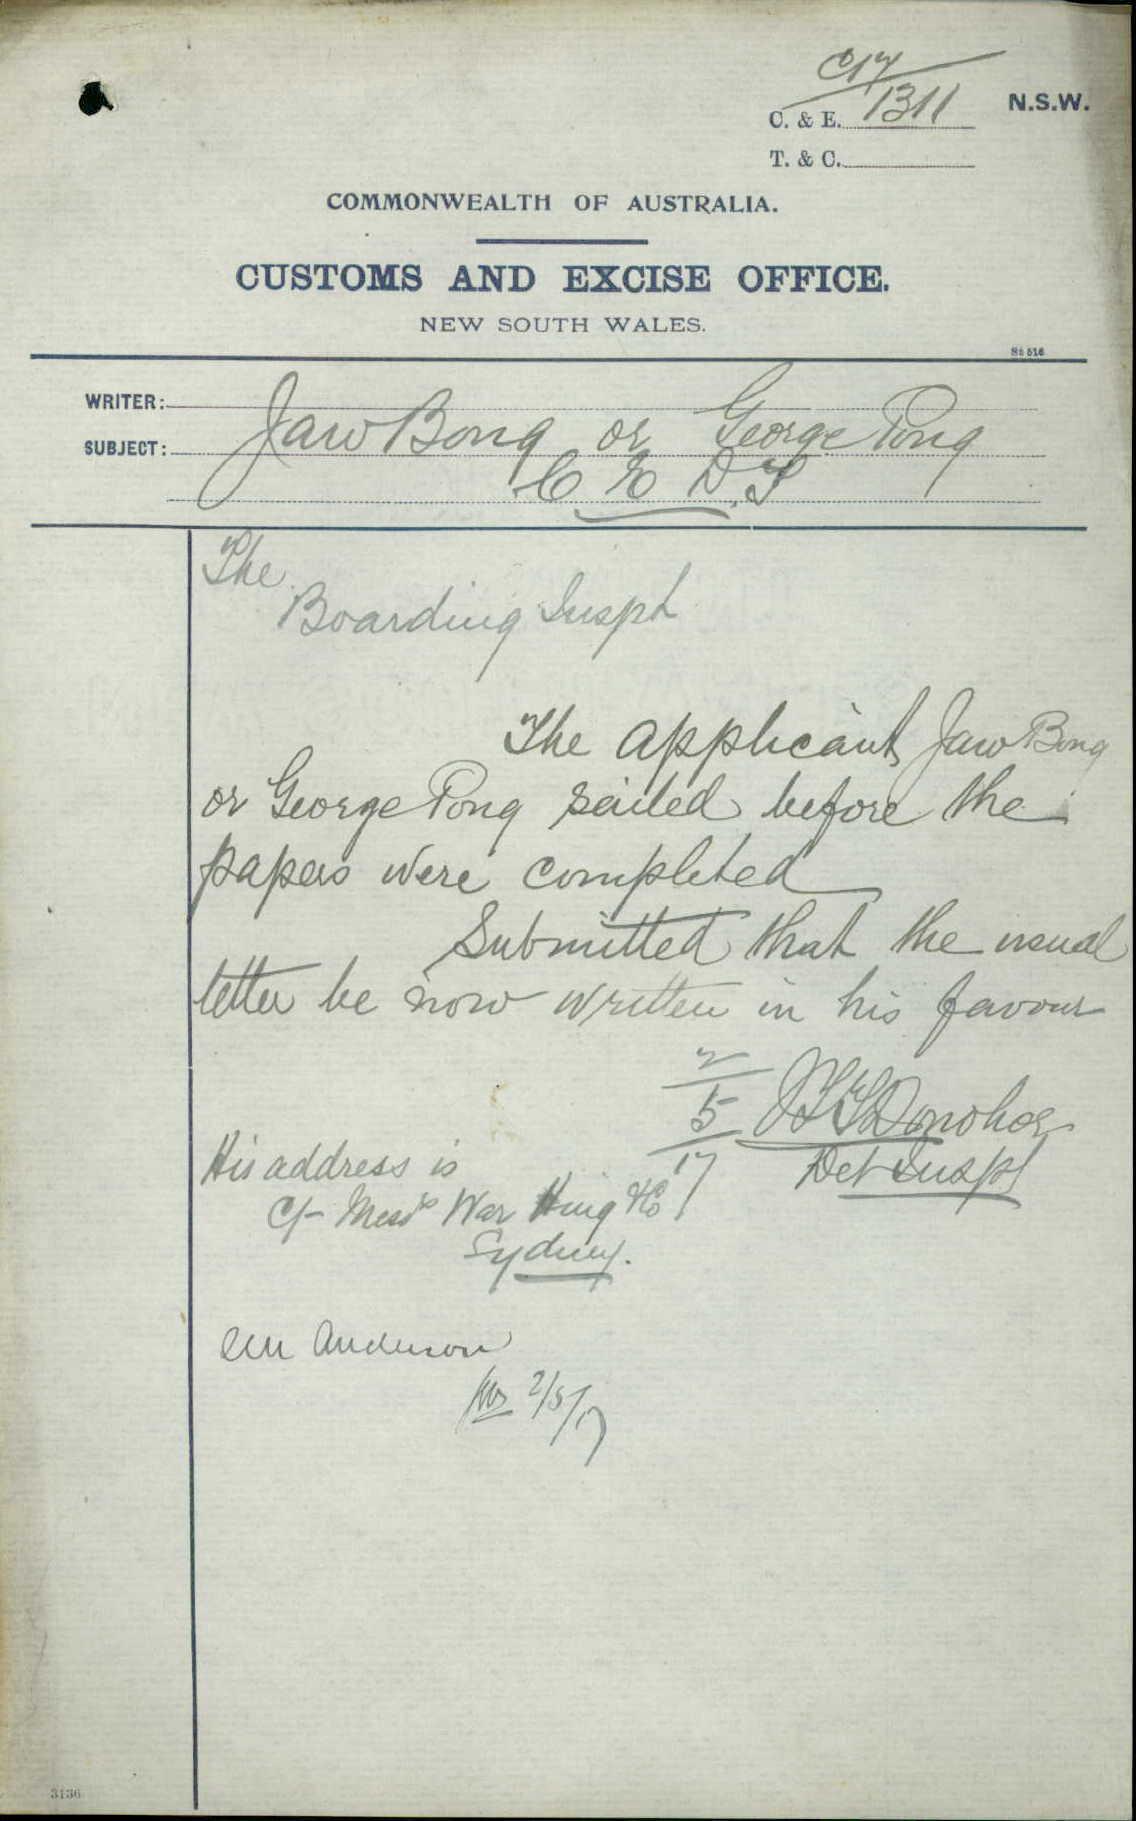 C17
C. & E. 1311 N.S.W.
T. & C.
COMMONWEALTH OF AUSTRALIA.
CUSTOMS AND EXCISE OFFICE.
NEW SOUTH WALES.
WRITER:
SUBJECT: Jaw Bong or George Pong
C E D T
The
Boarding Inspr
The applicant Jaw Bong
or George Pong sailed before the
papers were completed
Submitted that the usual
letter be now written in his favour
2/5/17 Donohoe
Det Inspr
His address is
C/- Messrs War Hing & Co
Sydney.
Mr Anderson
2/5/17
3136